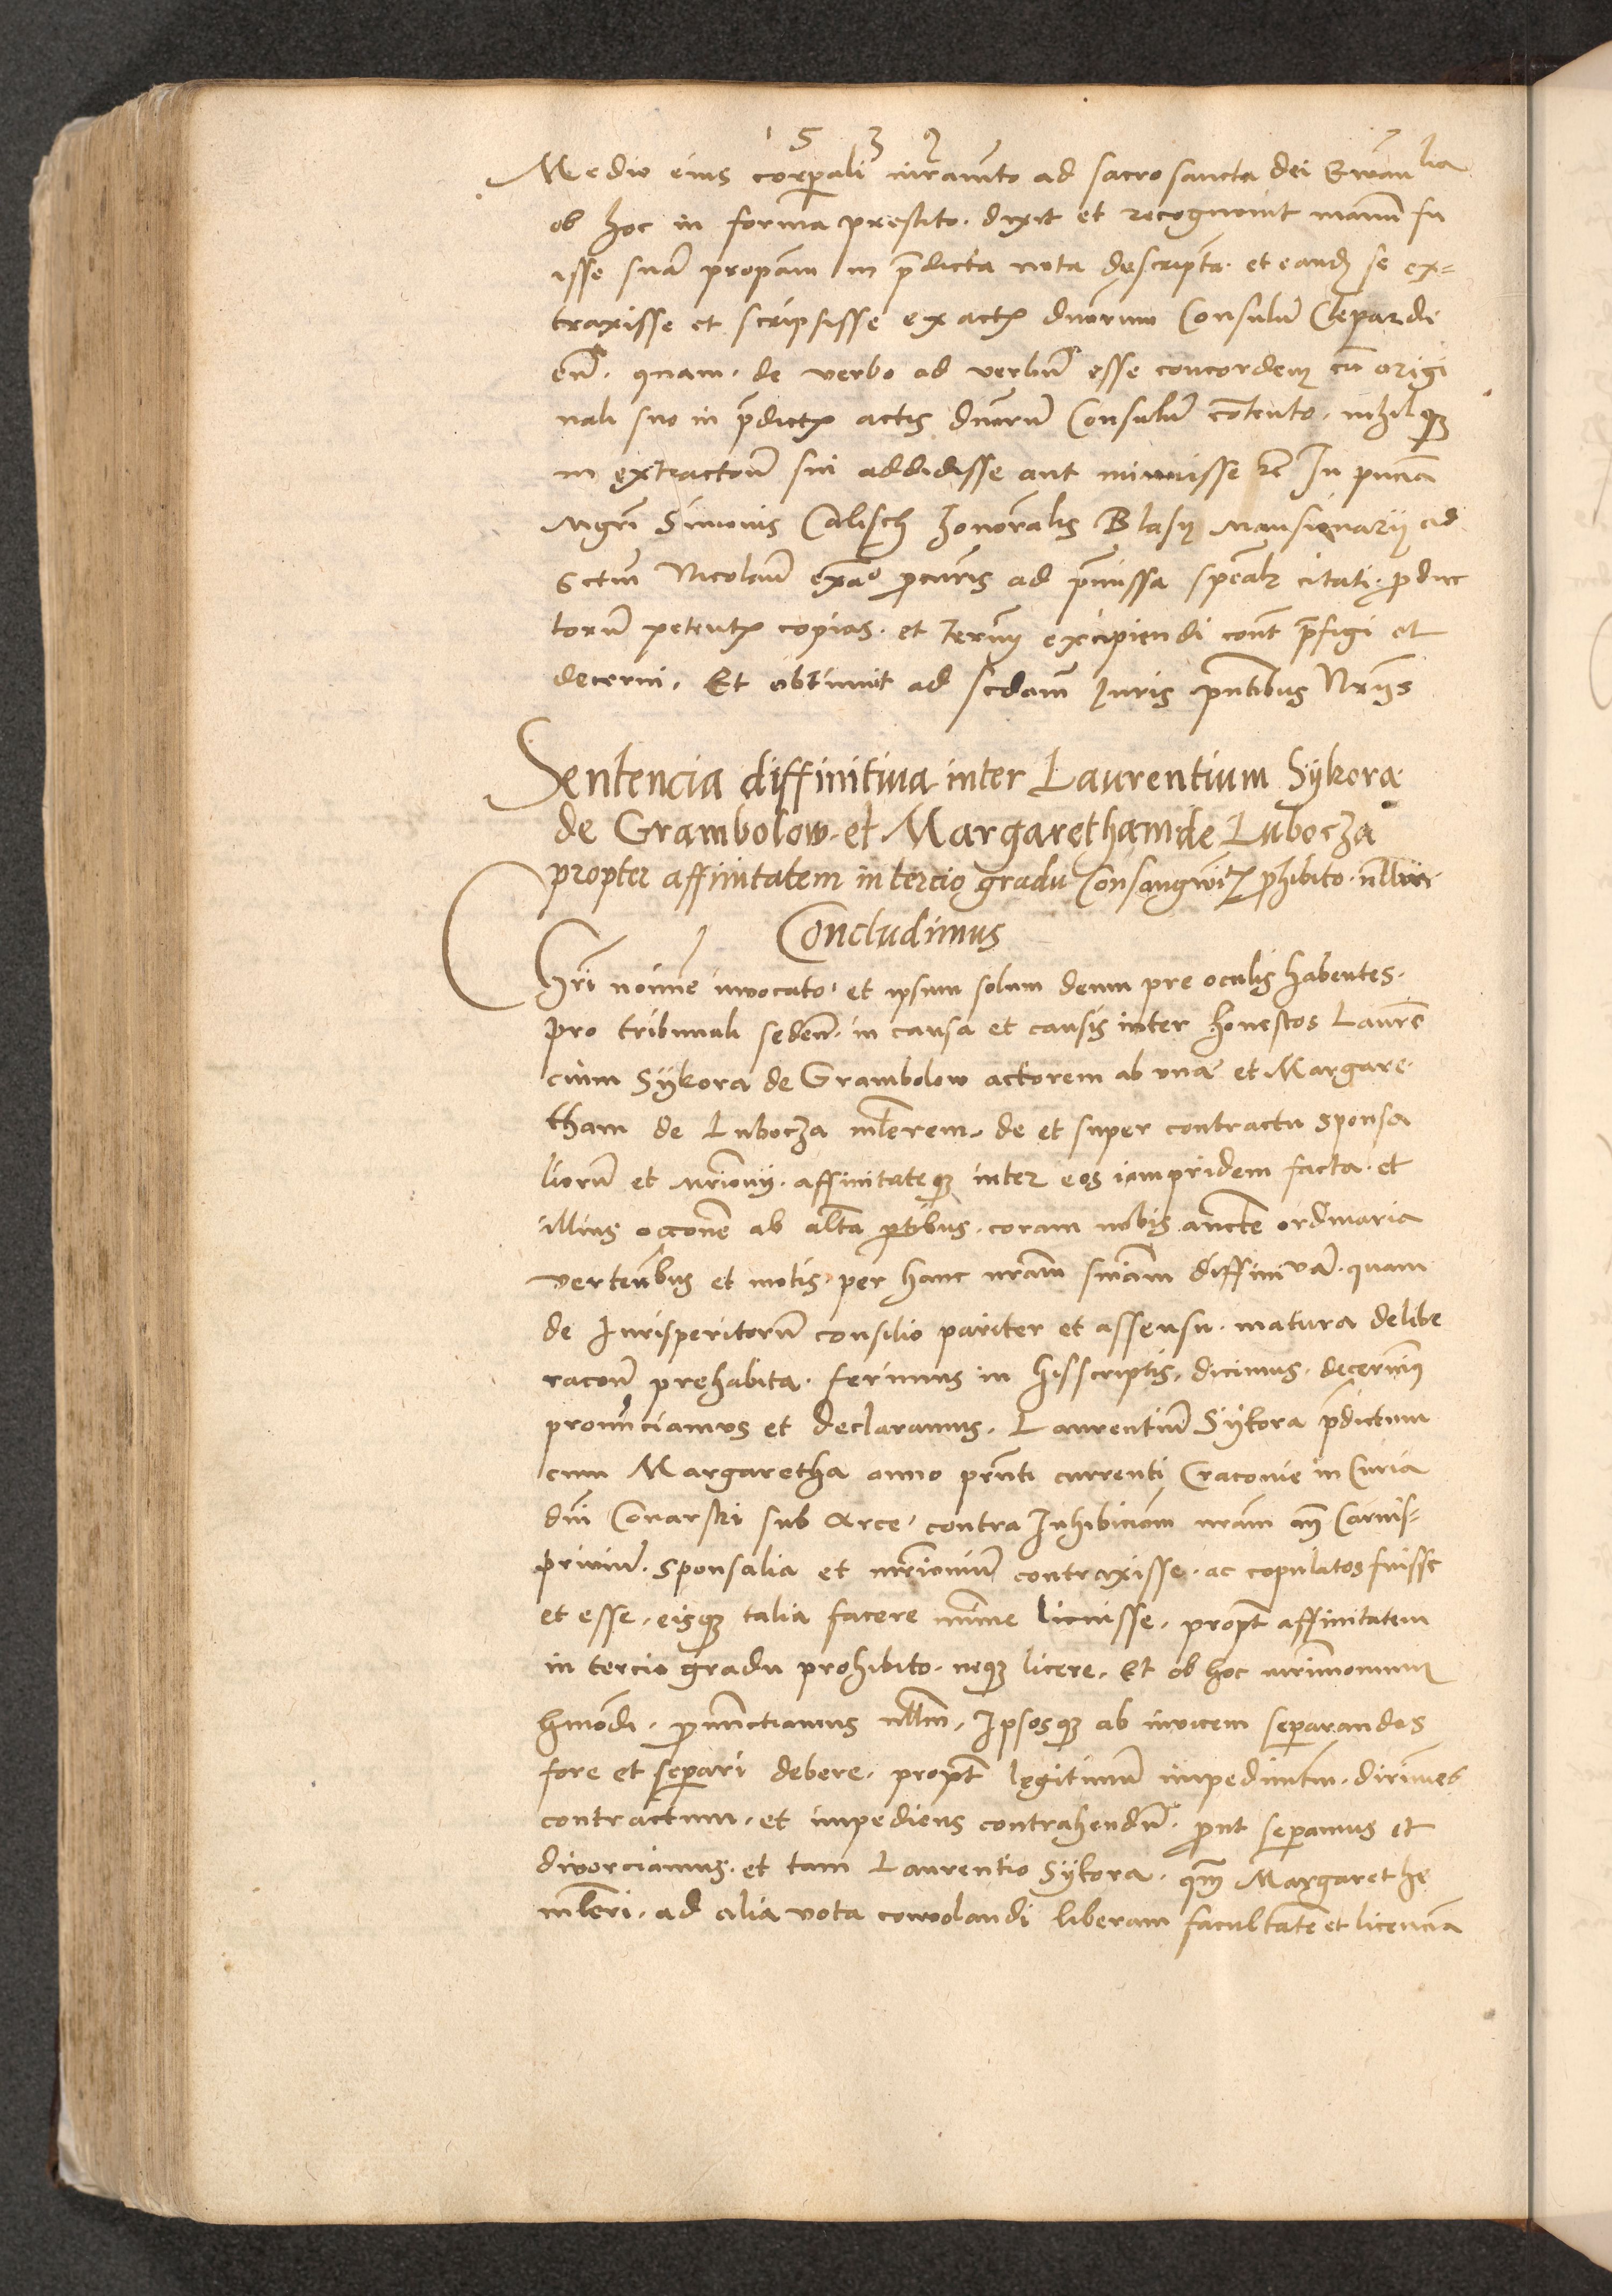 1532
Medio eius corporali iurameto ad sacrosancta dei Ewanlia
ob hoc in forma prestito. dixit et recognovit manum fu
isse sua propam in pdicta nota descripta. et eand se ex=
traxisse et scripsisse ex actis dnorum Consulum Clepardi
en. quam. de verbo ad verbum esse concordem cu origi
nali suo in pdictis actis dnorum Consulum contento. nihilq
in extractone sui addidisse aut minuisse etc In pncia
Mgri Simonis Calisch honoralis Blasij Mansionarij ad
Sctum Nicolaum ex ad pmissa citati. produc
torum petentis copias. et termm excipiendi cont prefigi et
decerni. Et obtinuit ad scdam Iuris pntibus Nrijs
Sentencia diffinitiua inter Laurentium Sÿkora
de Grambolow. et Margaretham de Lubocza
propter affinitatem in tercio gradu Consangwitis prohibito.
Concludimus
Chri noime inuocato. et ipsum solum deum pre oculis habentes.
pro tribunali seden. in causa et causis inter honestos Lauren
cium Sÿkora de Grambolow actorem ab una et Margare
tham de Lubocza mlierem. de et super contractu sponsa
liorum et mrimonij. affinitateq inter eos iampridem facta. et
illius occone ab alta ptibus. coram nobis aucte ordinaria
vertentibus et motis. per hanc nram sniam diffinivam. quam
de Iurisperitorum consilio pariter et assensu. matura delibe
racone prehabita. ferimus in hisscriptis. dicimus. decernimus
pronunciamus et declaramus. Laurentium Sÿkora pdictum
cum Margaretha anno prnti currenti Cracovie in Curia
dni Conarski sub Arce. contra Inhibicionem nram an Carnis=
privium. sponsalia et mrimonium contraxisse. ac copulatos fuisse
et esse. eisq talia facere minime licuisse. propt affinitatem
in tercio gradu prohibito. neq licere. Et ob hoc mrimonium
hmodi. pronunctiamus nllum. Ipsosq ab invicem separandos
fore et separi debere. propt legitimum impedimtm. dirimes
contractum. et impediens contrahendum. prout separamus et
divorciamus. et tam Laurentio Sÿkora. qm Margarethe
mlieri. ad alia vota convolandi liberam facultatem et licencia